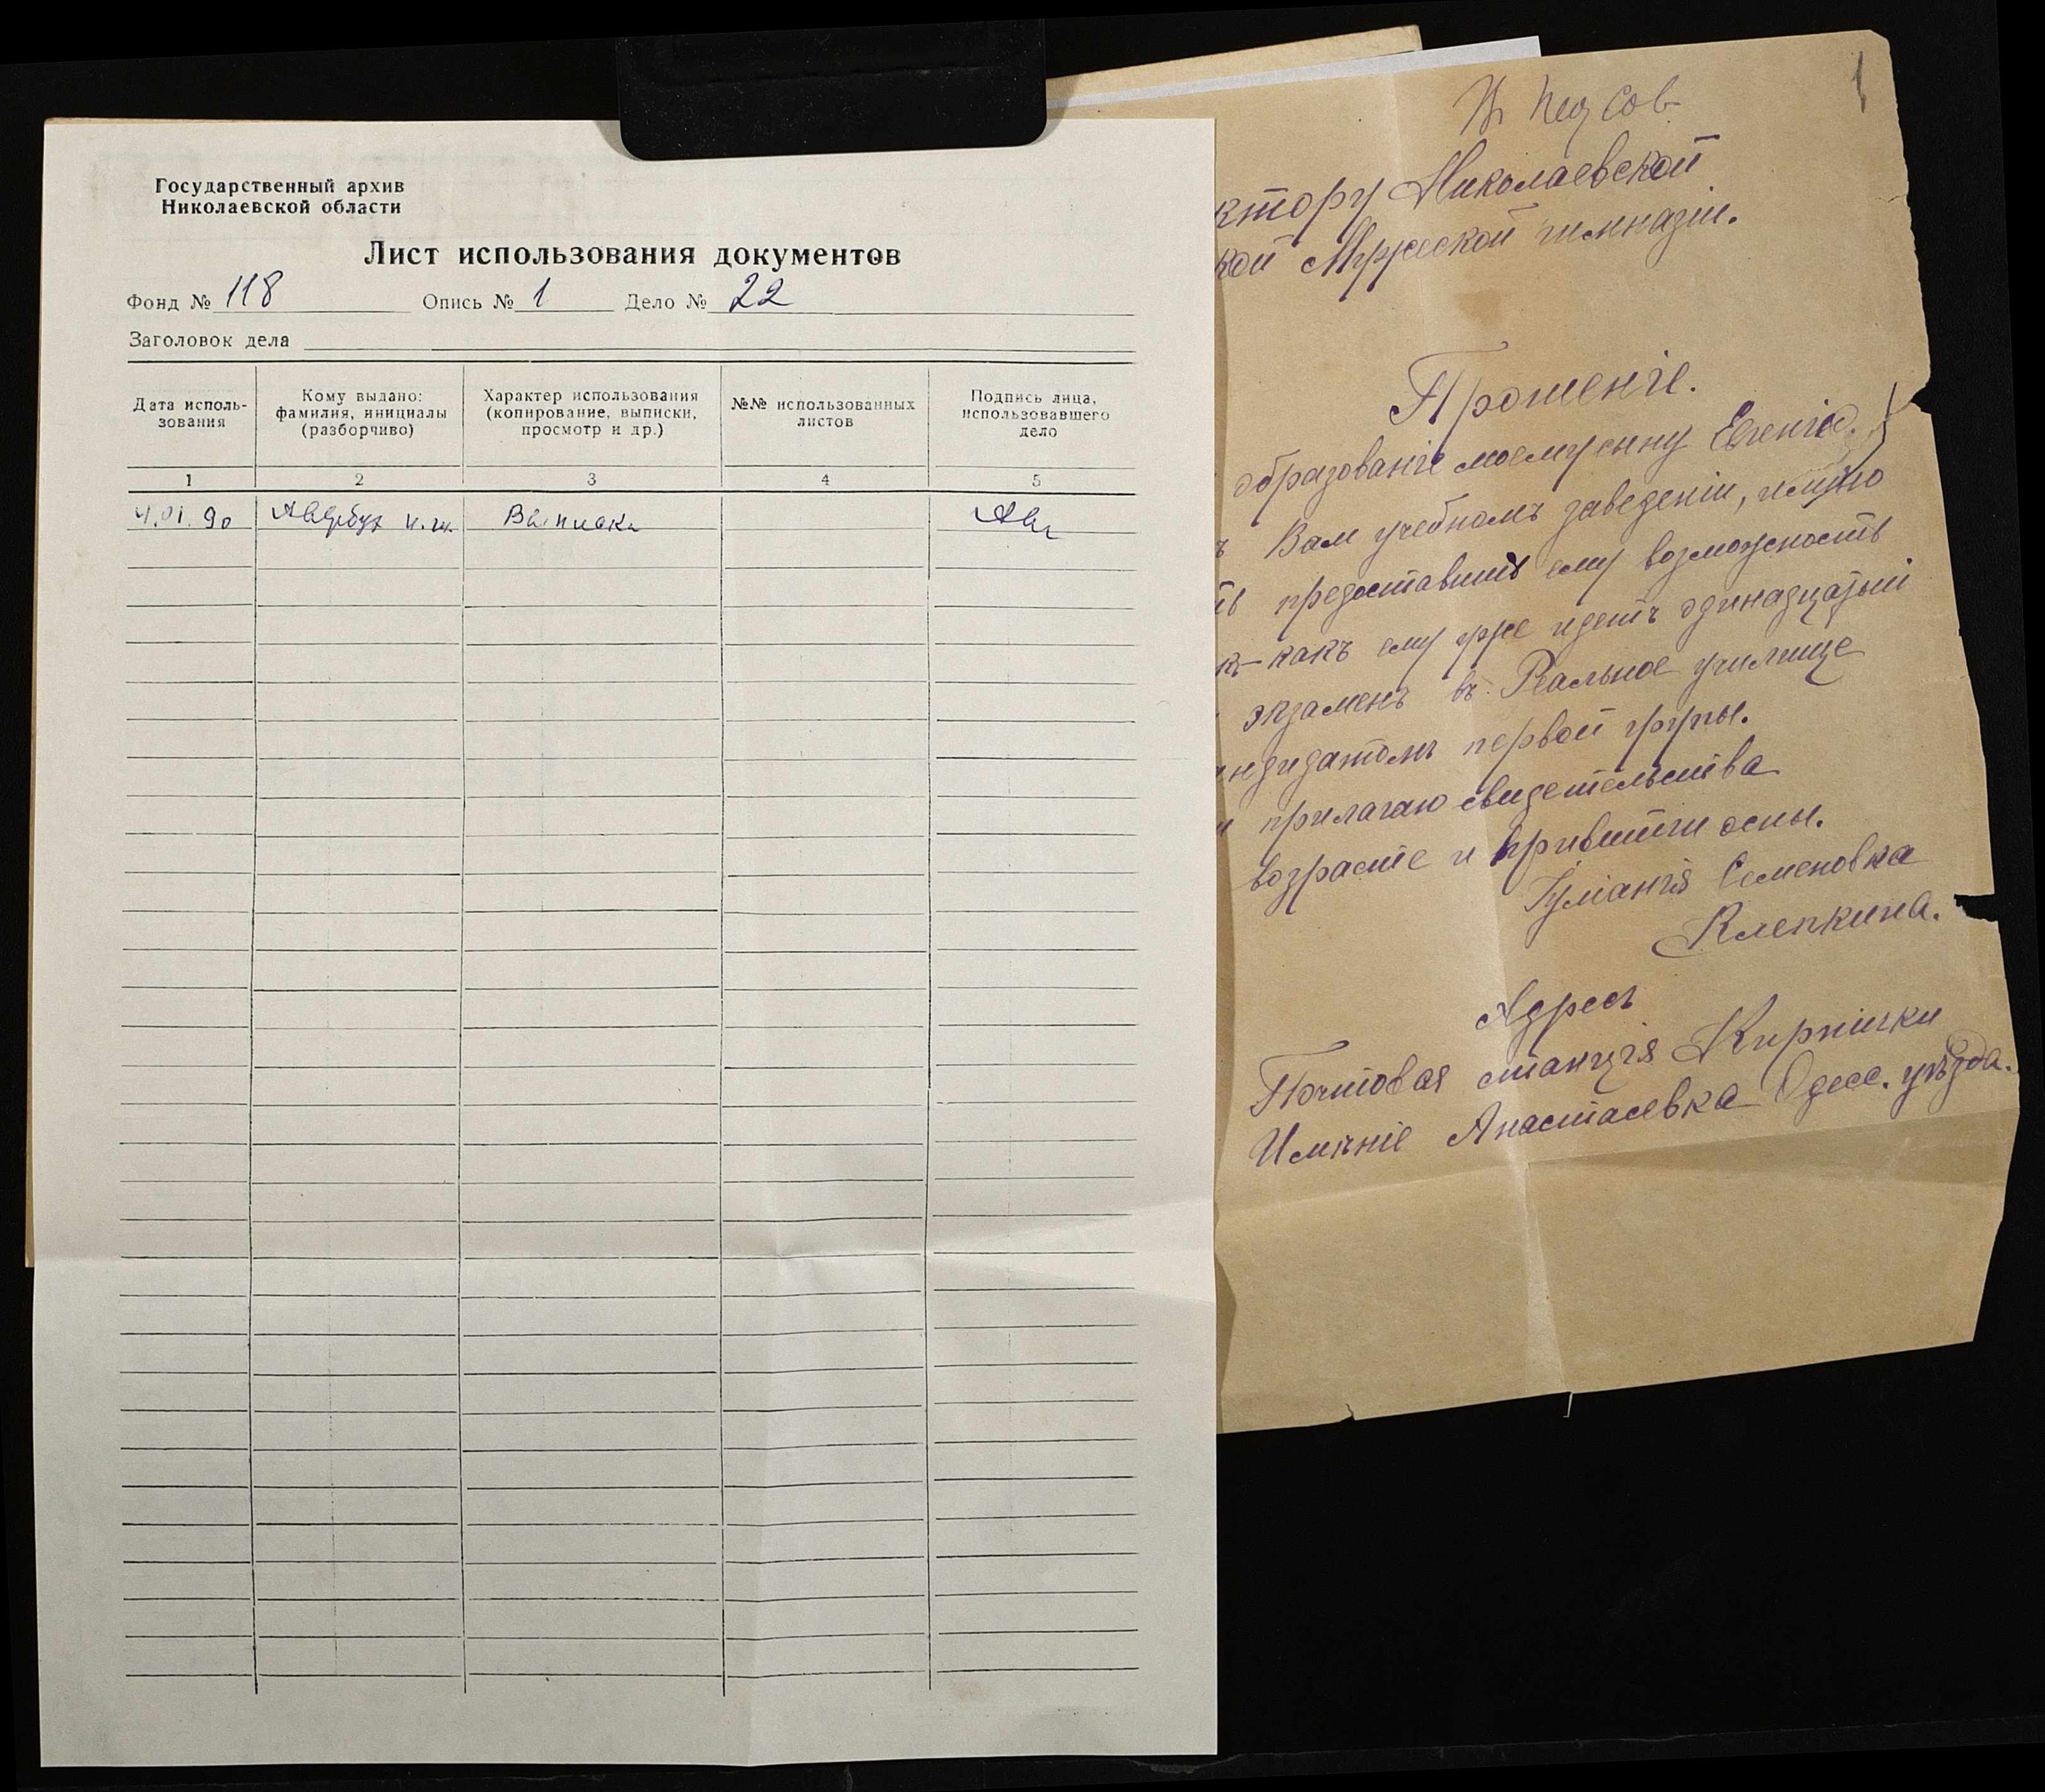 Государственный архив
Николаевской области
Лист использования документов
Фонд № 118 Опись № 1 Дело № 22
Заголовок дела
Дата исполь-
зования
Кому выдано:
фамилия, инициалы
(разборчиво)
Характер использования
(копирование, выписки,
просмотр и др.)
№№ использованных
листов
Подпись лица,
использовавшего
дело
1 2 3 4 5
4.01.90 Авербух Выписки
1
ктору Николаевской
кой Мужеской гимназіи.
Прошеніе.
образованіе моему сыну Евгенію
Вам учебномъ заведеніи, имѣю
предоставить ему возможность
к-какъ ему уже идетъ одинадцатый
экзаменъ въ Реальное училище
ндидатомъ первой групы.
и прилагаю свидетельства
возрасте и прививти оспы.
Іуліанія Семеновна
Клепкина.
Адресъ
Почтовая станція Кирпички
Имѣніе Анастасевка Одесс. уѣзда.